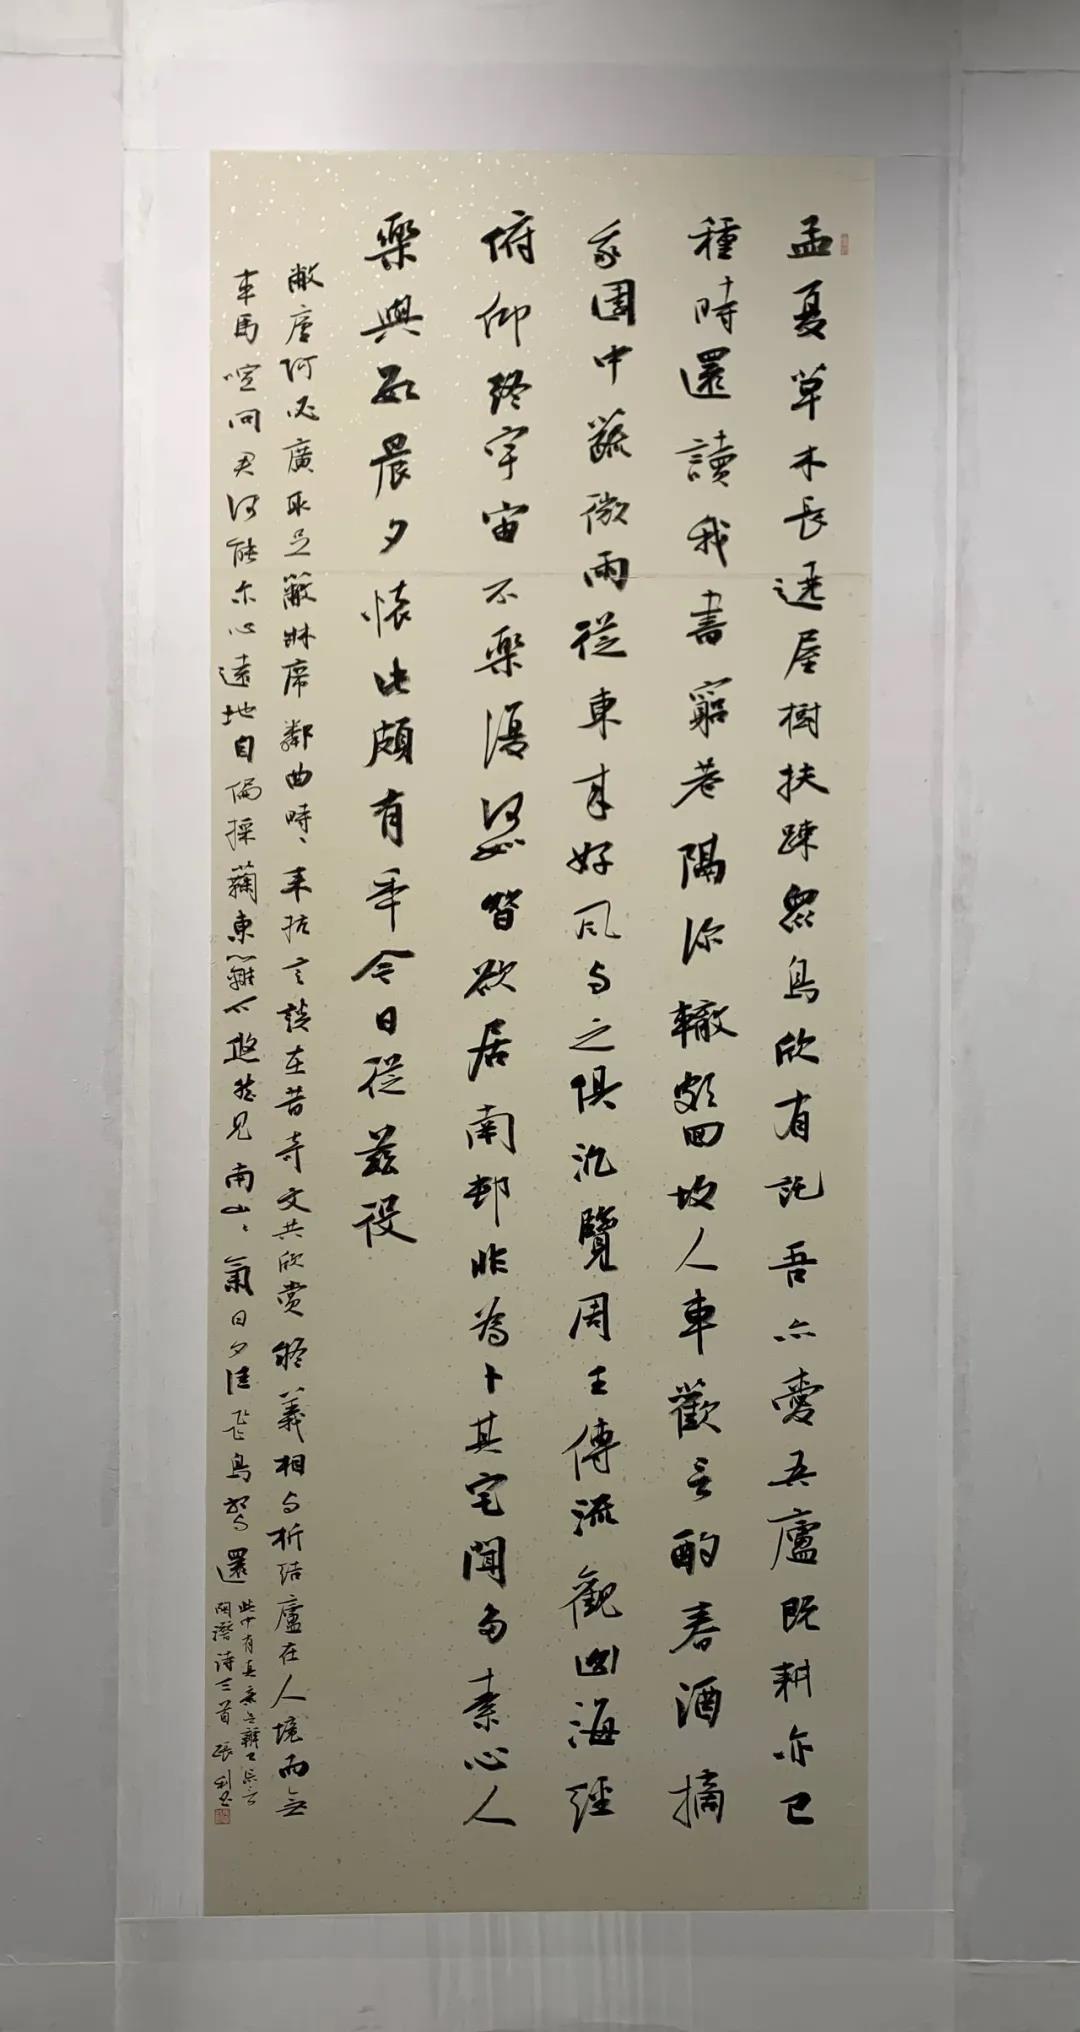 孟夏草木長遶屋樹扶疎眾鳥欣有託吾亦愛吾廬既耕亦已
種時還讀我書窮巷隔深轍頗回故人車歡言酌春酒摘
我園中蔬微雨從東來好風与之俱汎覽周王傳流觀山海經
俯仰終宇宙不樂復何如昔欲居南邨非為卜其宅聞多素心人
樂與數晨夕懷此頗有年今日從茲役
敝廬何必廣取足蔽牀席鄰曲時々來抗言談在昔奇文共欣賞疑義相与析結廬在人境而無
車馬喧問君何能尔心遠地自偏採菊東籬下悠然見南山々氣日夕佳飛鳥相与還
此中有真意欲辯已忘言
陶潛詩三首 張利書